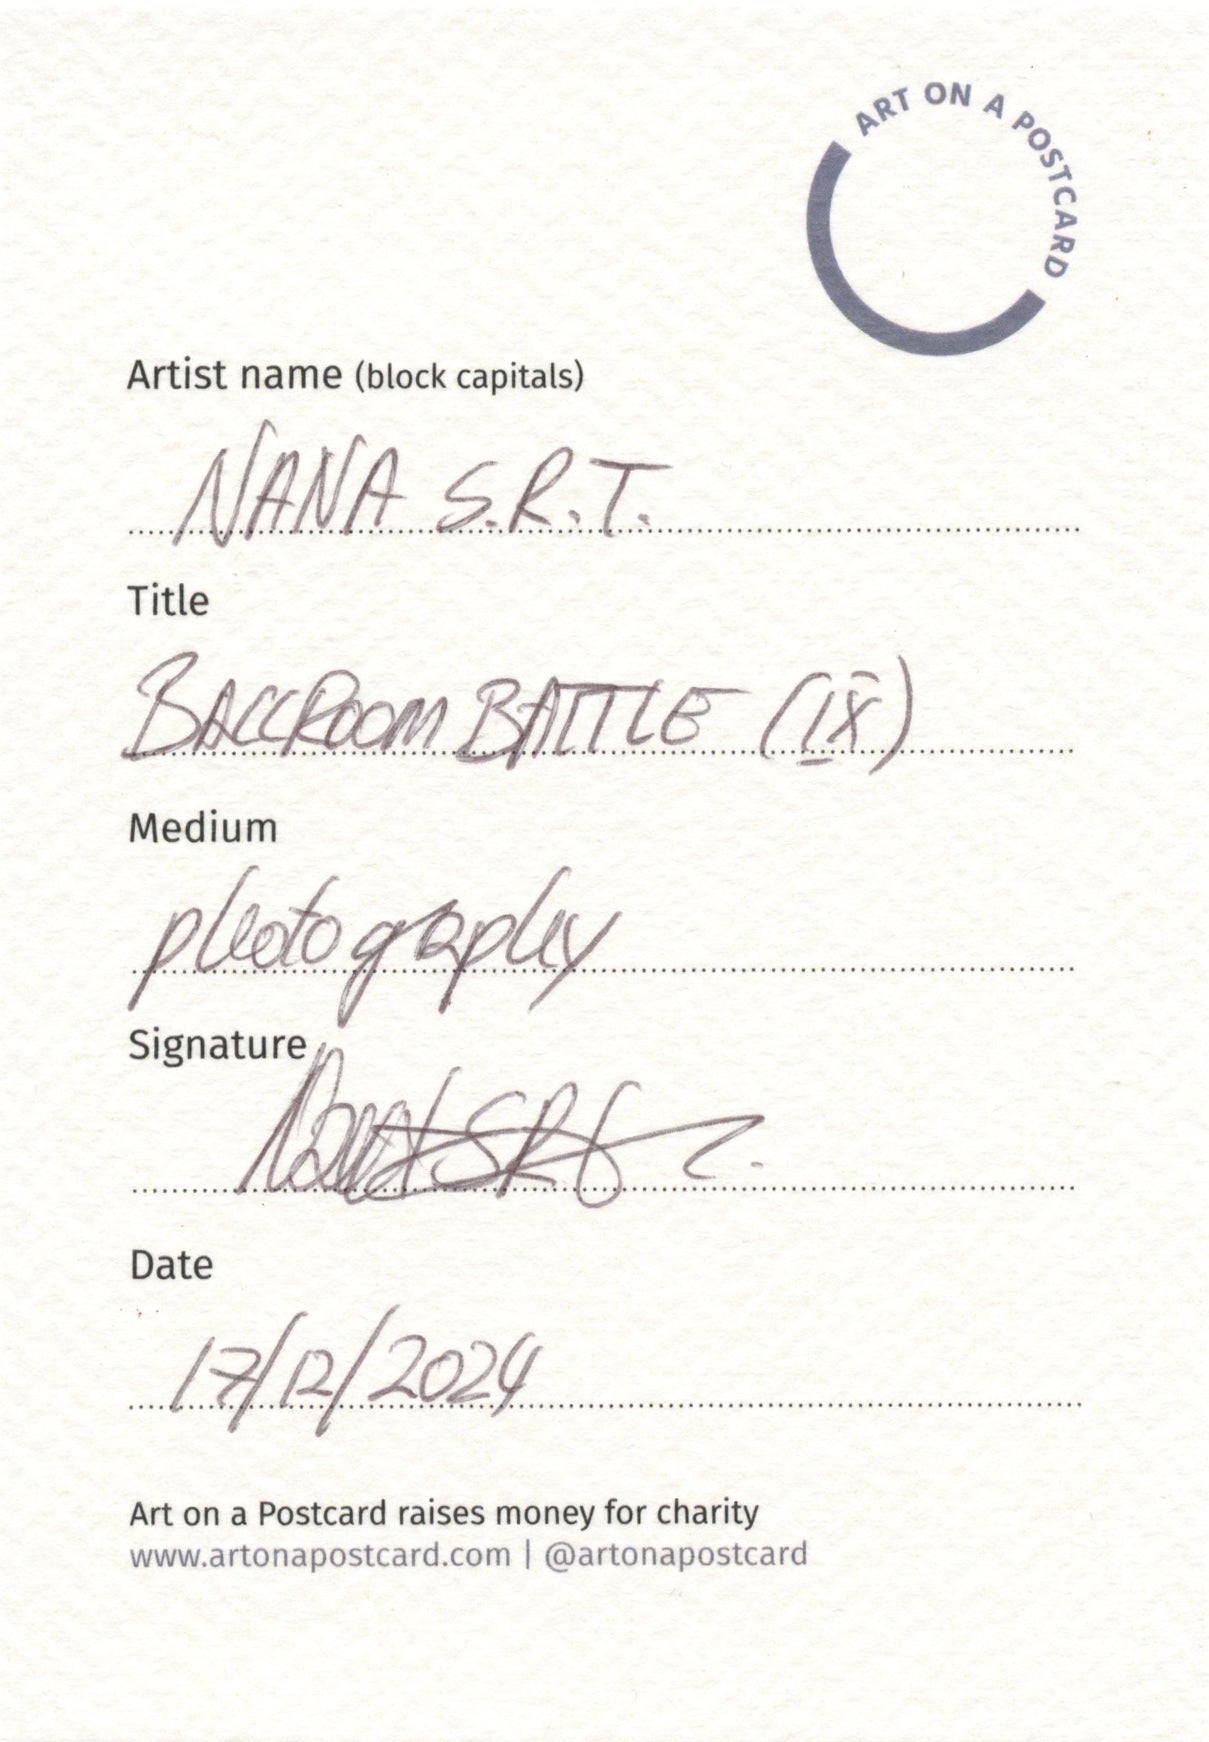 ART ON A POSTCARD
Artist name (block capitals)
NANA S.R.T.
Title
BALLROOM BATTLE (IX)
Medium
photography
Signature
Date
17/12/2024
Art on a Postcard raises money for charity
www.artonapostcard.com | @artonapostcard